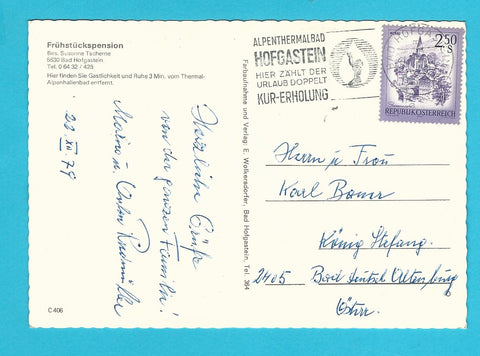 Frühstückspension
Bes. Susanne Tscherne
5630 Bad Hofgastein
Tel. 0 64 32 / 425
Hier finden Sie Gastlichkeit und Ruhe 3 Min. vom Thermal-
Alpenhallenbad entfernt.
23. XII 79
Herzliche Grüße
von der ganzen Familie!
Maria u. Anton
C 406
Farbaufnahme und Verlag: E. Wolkersdorfer, Bad Hofgastein, Tel. 384
ALPENTHERMALBAD
HOFGASTEIN
HIER ZÄHLT DER
URLAUB DOPPELT
KUR-ERHOLUNG
2.50
S
REPUBLIK ÖSTERREICH
Herrn u. Frau
Karl Bauer
König Stefang.
2405 Bad Deutsch Altenburg
Österr.